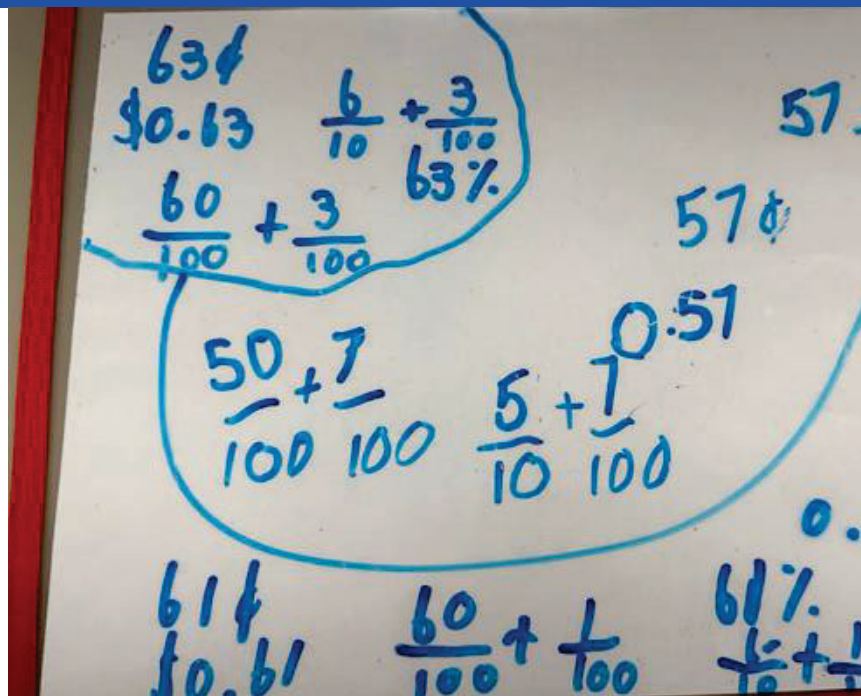 63¢
$0.63
6/10 + 3/100
63%
60/100 + 3/100
57
57¢
0.57
50/100 + 7/100
5/10 + 7/100
0.
61¢
$0.61
60/100 + 1/100
61%